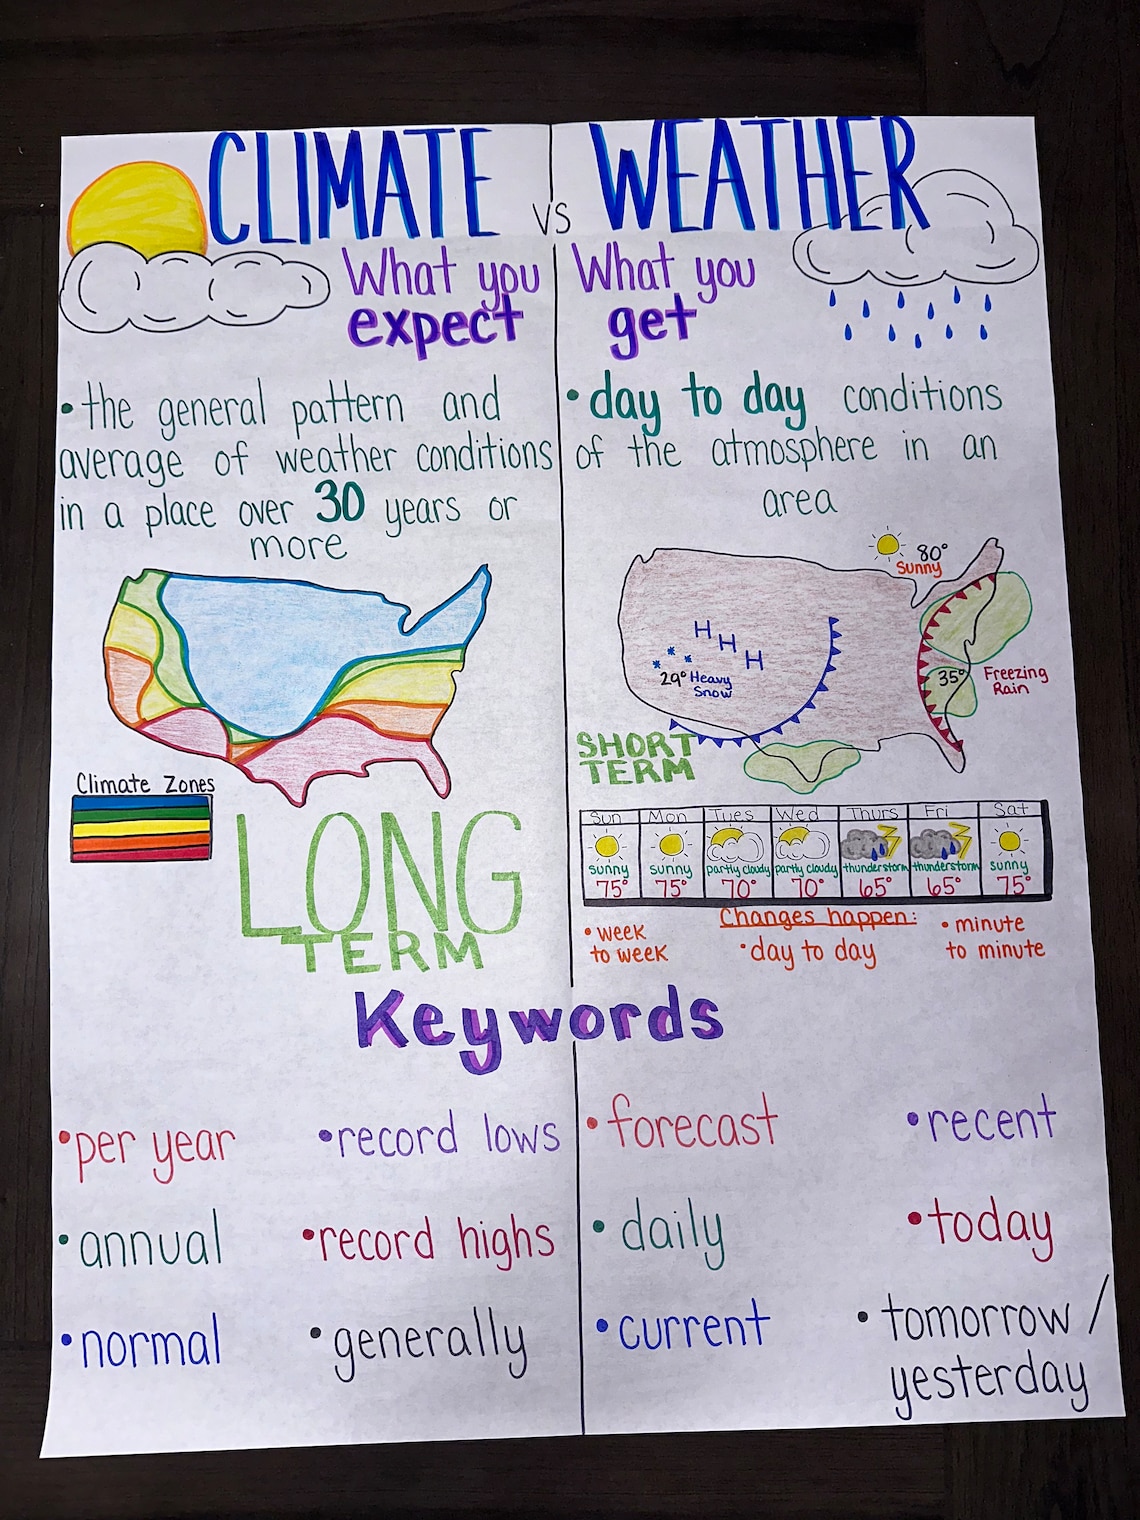 CLIMATE vs WEATHER
What you
expect
• the general pattern and
average of weather conditions
in a place over 30 years or
more
Climate Zones
LONG
TERM
What you
get
• day to day conditions
of the atmosphere in an
area
80°
Sunny
H H H
29° Heavy
Snow
35°
Freezing
Rain
SHORT
TERM
Sun Mon Tues Wed Thurs Fri Sat
sunny sunny partly cloudy partly cloudy thunderstorm thunderstorm sunny
75° 75° 70° 70° 65° 65° 75°
Changes happen:
• week
to week
• day to day
• minute
to minute
Keywords
• per year • record lows
• annual • record highs
• normal • generally
• forecast • recent
• daily • today
• current • tomorrow /
yesterday